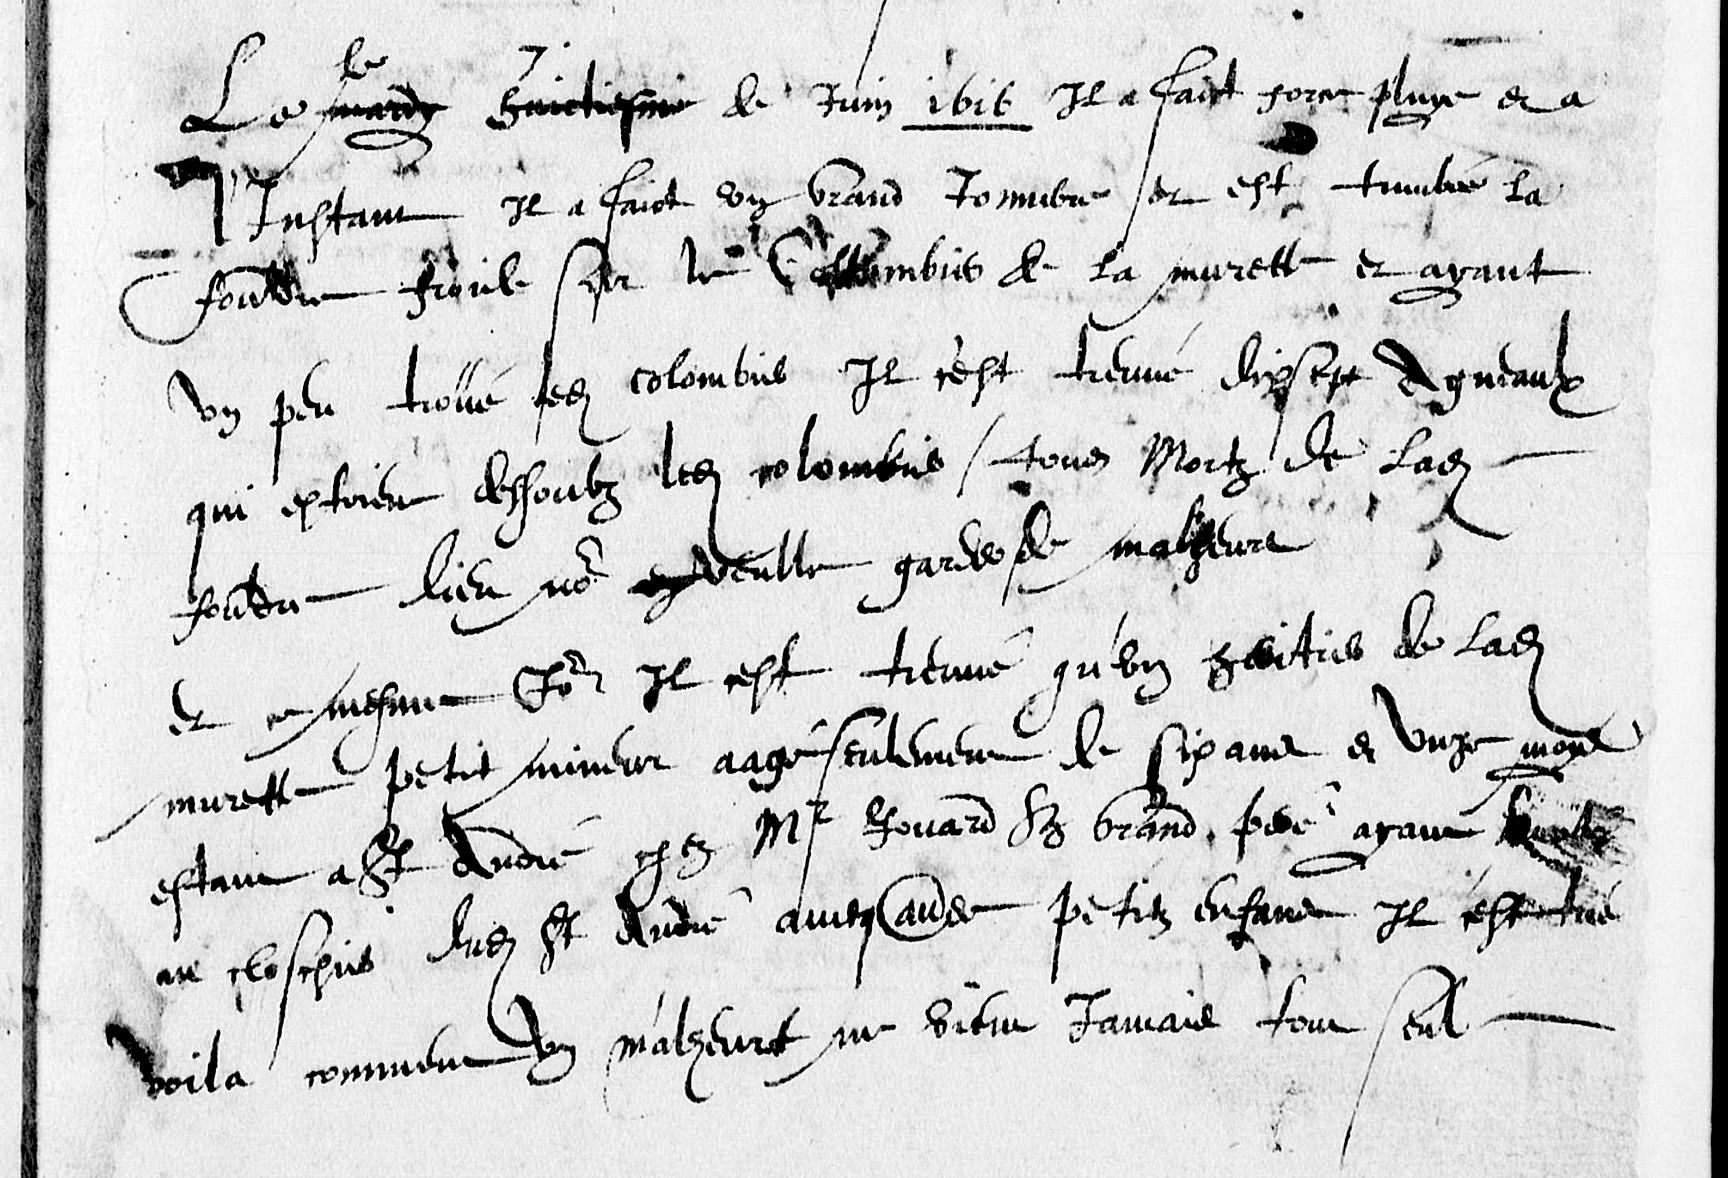 Le mardy huictiesme 7 de Juin 1616 Il a faict force pluye et a
l'Instant Il a faict un grand Tonnerre et est tumbée la
fouldre sur le Collumbier de la murette et ayant
un peu troué led colombier Il c'est treuvé dixsept Agneaulx
qui estoient dessoubz led colombier tous Mortz de lad
fouldre dieu nos veulle garder de malheurs
et ce mesme Jor Il c'est treuvé qu'un heritier de lad
murette petit mineur aagé seulement de six ans et unze moys
estant a St André chez Mr Rouard Sr grand pere ayant
au closchier dud St André avecq aude petitz enfans Il c'est tué
voila comment un malheurt ne vient Jamais tout seul